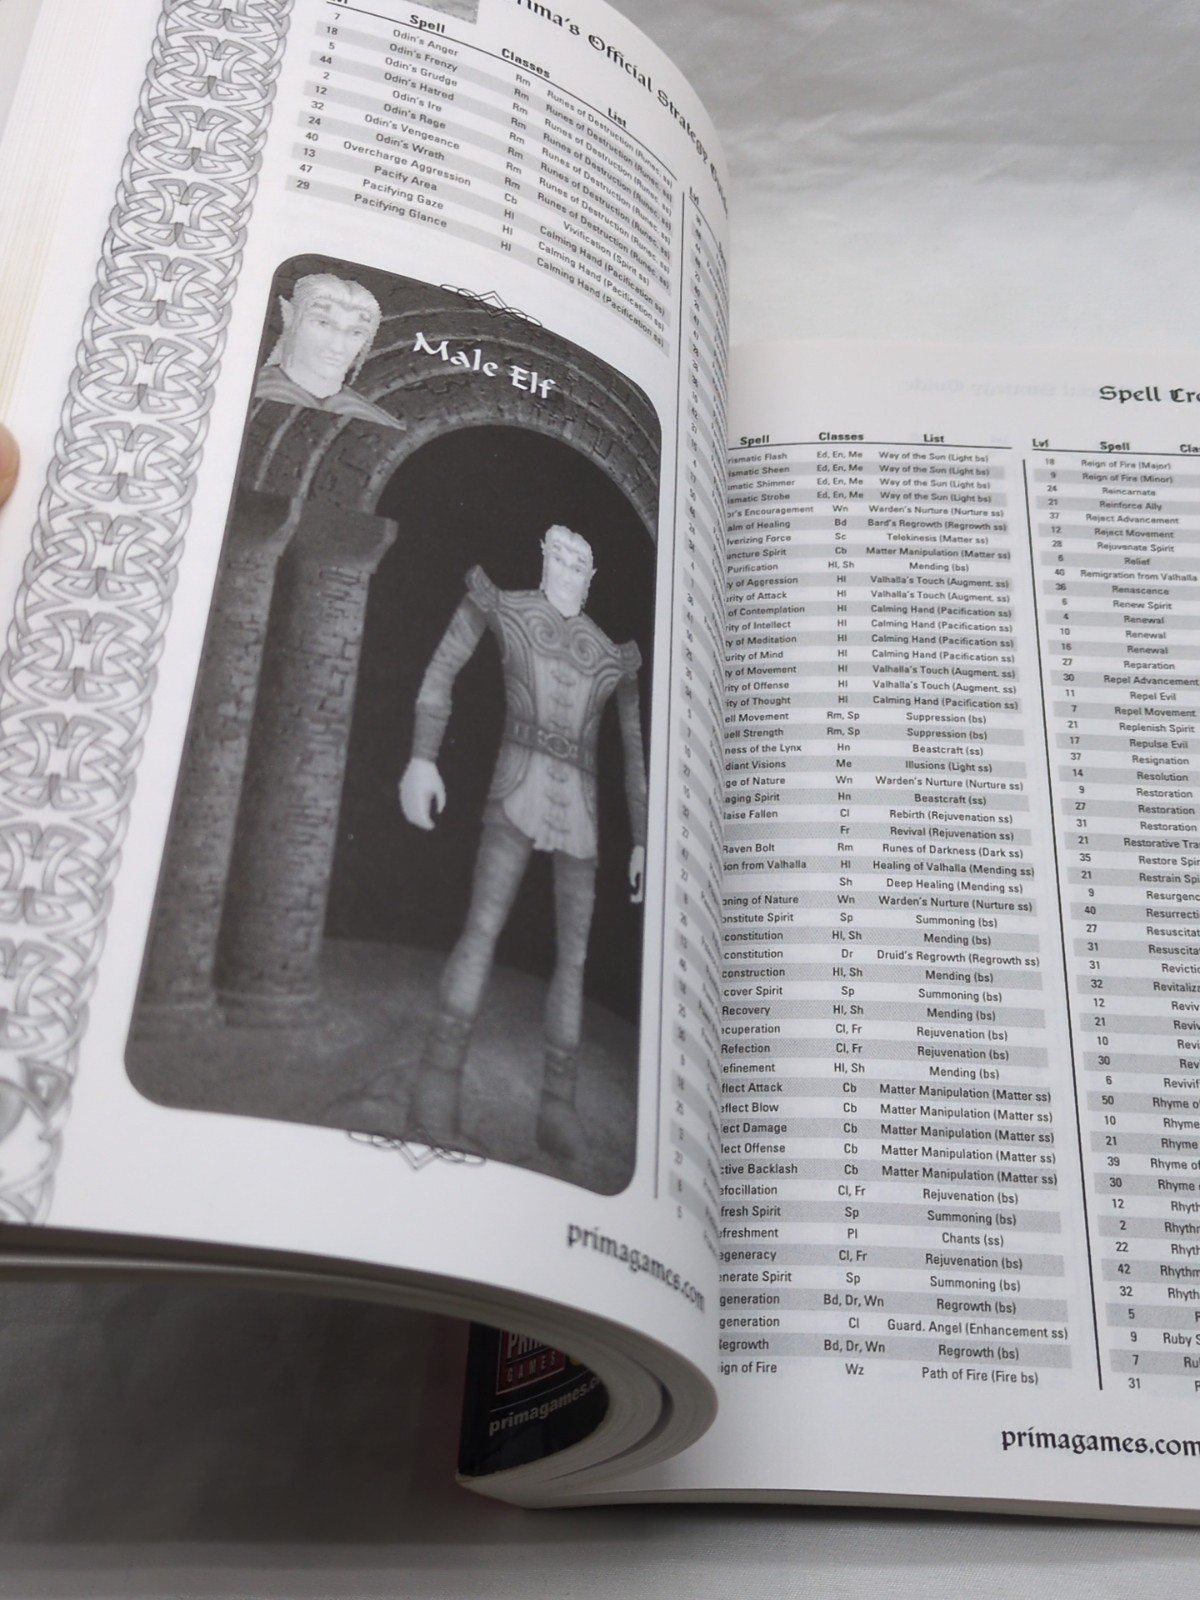 Prima's Official Strategy
Lvl Spell Classes List
7 Odin's Anger Rm Runes of Destruction (Runec. ss)
18 Odin's Frenzy Rm Runes of Destruction (Runec. ss)
5 Odin's Grudge Rm Runes of Destruction (Runec. ss)
44 Odin's Hatred Rm Runes of Destruction (Runec. ss)
2 Odin's Ire Rm Runes of Destruction (Runec. ss)
12 Odin's Rage Rm Runes of Destruction (Runec. ss)
32 Odin's Vengeance Rm Runes of Destruction (Runec. ss)
24 Odin's Wrath Rm Runes of Destruction (Runec. ss)
40 Overcharge Aggression Cb Vivification (Spirit ss)
13 Pacify Area Hl Calming Hand (Pacification ss)
47 Pacifying Gaze Hl Calming Hand (Pacification ss)
29 Pacifying Glance Hl Calming Hand (Pacification ss)
Male Elf
primagames.com
GAMES
primagames.c
Spell Cr
Spell Classes List
rismatic Flash Ed, En, Me Way of the Sun (Light bs)
ismatic Sheen Ed, En, Me Way of the Sun (Light bs)
matic Shimmer Ed, En, Me Way of the Sun (Light bs)
ismatic Strobe Ed, En, Me Way of the Sun (Light bs)
r's Encouragement Wn Warden's Nurture (Nurture ss)
alm of Healing Bd Bard's Regrowth (Regrowth ss)
lverizing Force Sc Telekinesis (Matter ss)
uncture Spirit Cb Matter Manipulation (Matter ss)
Purification Hl, Sh Mending (bs)
y of Aggression Hl Valhalla's Touch (Augment. ss)
rity of Attack Hl Valhalla's Touch (Augment. ss)
of Contemplation Hl Calming Hand (Pacification ss)
ity of Intellect Hl Calming Hand (Pacification ss)
ty of Meditation Hl Calming Hand (Pacification ss)
urity of Mind Hl Calming Hand (Pacification ss)
y of Movement Hl Valhalla's Touch (Augment. ss)
rity of Offense Hl Valhalla's Touch (Augment. ss)
ity of Thought Hl Calming Hand (Pacification ss)
ell Movement Rm, Sp Suppression (bs)
uell Strength Rm, Sp Suppression (bs)
ness of the Lynx Hn Beastcraft (ss)
diant Visions Me Illusions (Light ss)
ge of Nature Wn Warden's Nurture (Nurture ss)
aging Spirit Hn Beastcraft (ss)
aise Fallen Cl Rebirth (Rejuvenation ss)
Fr Revival (Rejuvenation ss)
Raven Bolt Rm Runes of Darkness (Dark ss)
ion from Valhalla Hl Healing of Valhalla (Mending ss)
Sh Deep Healing (Mending ss)
oning of Nature Wn Warden's Nurture (Nurture ss)
onstitute Spirit Sp Summoning (bs)
constitution Hl, Sh Mending (bs)
constitution Dr Druid's Regrowth (Regrowth ss)
construction Hl, Sh Mending (bs)
cover Spirit Sp Summoning (bs)
Recovery Hl, Sh Mending (bs)
cuperation Cl, Fr Rejuvenation (bs)
Refection Cl, Fr Rejuvenation (bs)
efinement Hl, Sh Mending (bs)
flect Attack Cb Matter Manipulation (Matter ss)
eflect Blow Cb Matter Manipulation (Matter ss)
lect Damage Cb Matter Manipulation (Matter ss)
lect Offense Cb Matter Manipulation (Matter ss)
ctive Backlash Cb Matter Manipulation (Matter ss)
efocillation Cl, Fr Rejuvenation (bs)
fresh Spirit Sp Summoning (bs)
efreshment Pl Chants (ss)
egeneracy Cl, Fr Rejuvenation (bs)
enerate Spirit Sp Summoning (bs)
generation Bd, Dr, Wn Regrowth (bs)
generation Cl Guard. Angel (Enhancement ss)
Regrowth Bd, Dr, Wn Regrowth (bs)
ign of Fire Wz Path of Fire (Fire bs)
Lvl Spell Cla
18 Reign of Fire (Major)
9 Reign of Fire (Minor)
24 Reincarnate
21 Reinforce Ally
37 Reject Advancement
12 Reject Movement
28 Rejuvenate Spirit
6 Relief
40 Remigration from Valhalla
36 Renascence
6 Renew Spirit
4 Renewal
10 Renewal
16 Renewal
27 Reparation
30 Repel Advancement
11 Repel Evil
7 Repel Movement
21 Replenish Spirit
17 Repulse Evil
37 Resignation
14 Resolution
9 Restoration
27 Restoration
31 Restoration
21 Restorative Tra
35 Restore Spir
21 Restrain Spi
9 Resurgenc
40 Resurrecti
27 Resuscitat
31 Resuscita
31 Revictic
32 Revitaliz
12 Reviv
21 Reviv
10 Revi
30 Rev
6 Revivif
50 Rhyme o
10 Rhyme
21 Rhyme
39 Rhyme of
30 Rhyme
12 Rhyth
2 Rhythm
22 Rhyth
42 Rhythm
32 Rhyth
5
9 Ruby S
7 Ru
31
primagames.com